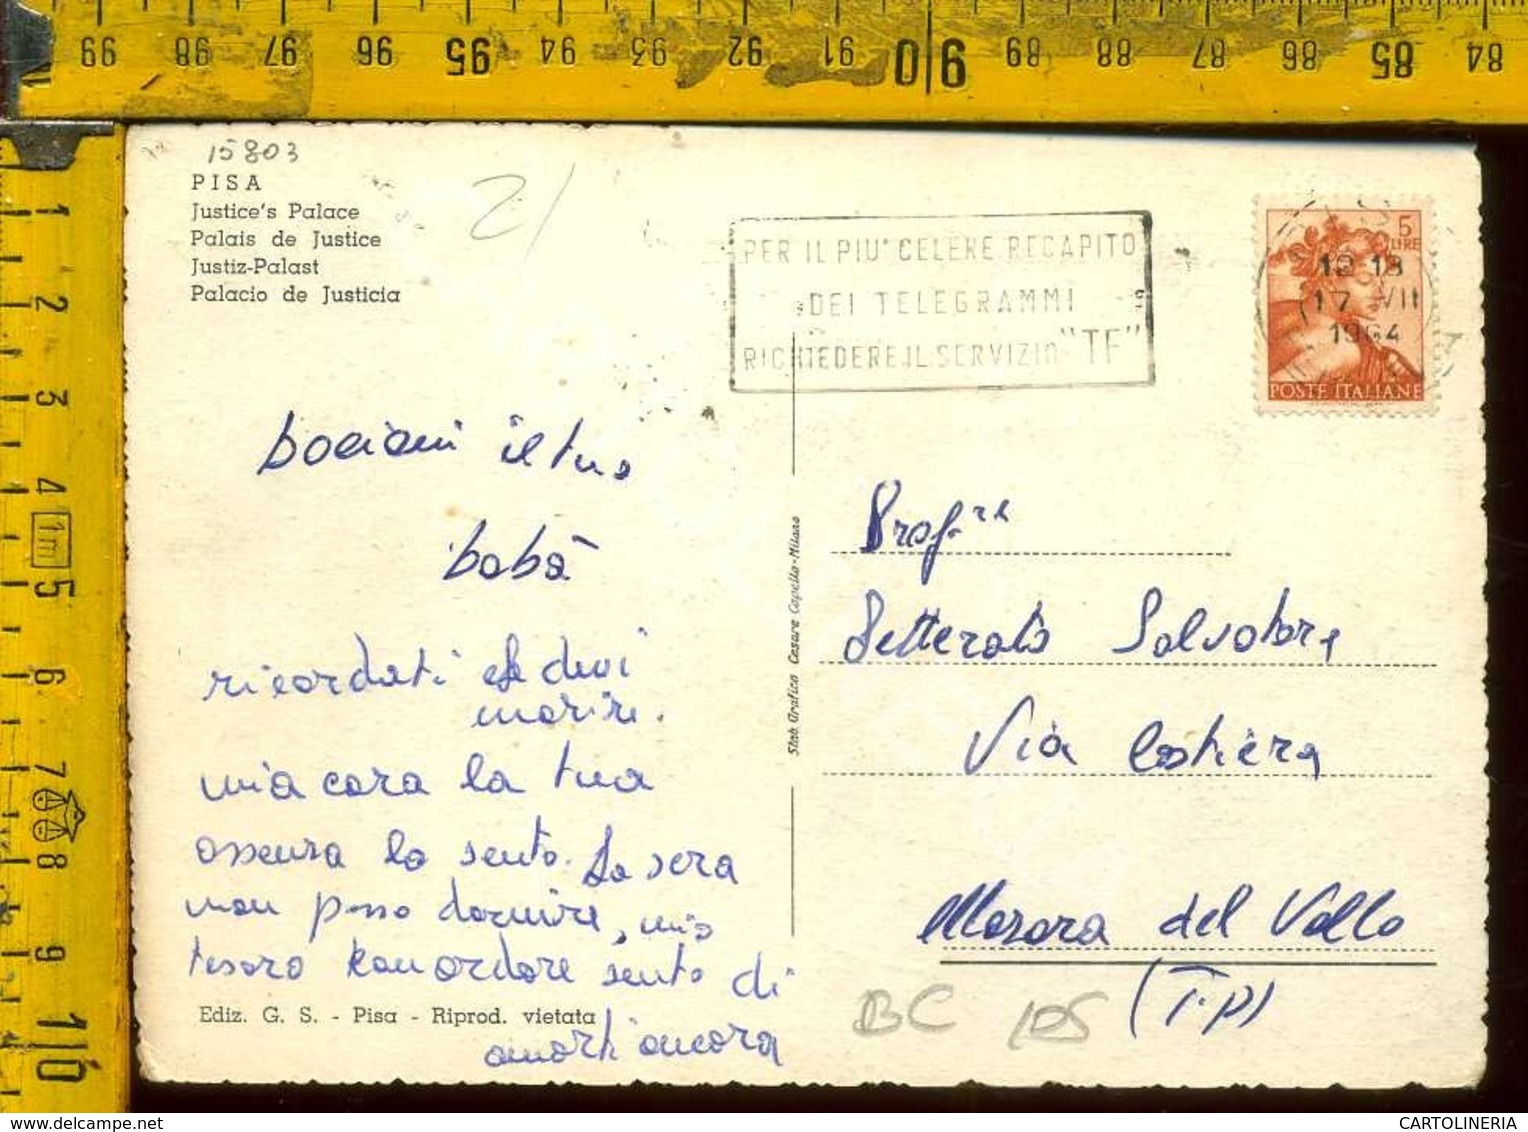 99 98 97 96 95 94 93 92 91 90 89 88 87 86 85 84
1 2 3 4 1m 5 6 7 8 9 10
15803
PISA
Justice's Palace
Palais de Justice
Justiz-Palast
Palacio de Justicia
21
PER IL PIU' CELERE RECAPITO
DEI TELEGRAMMI
RICHIEDERE IL SERVIZIO "TF"
5
LIRE
12-13
17 VII
1964
POSTE ITALIANE
bacioni il tuo
babà
ricordati che devi
morire.
mia cara la tua
assenza la sento. La sera
non posso dormire, mio
tesoro non sento di
amarti ancora
Ediz. G. S. - Pisa - Riprod. vietata
Stab. Grafico Cesare Capello-Milano
Prof.re
Salvatore
Via Costiera
Mazara del Vallo
(T.P)
BC 105
CARTOLINERIA